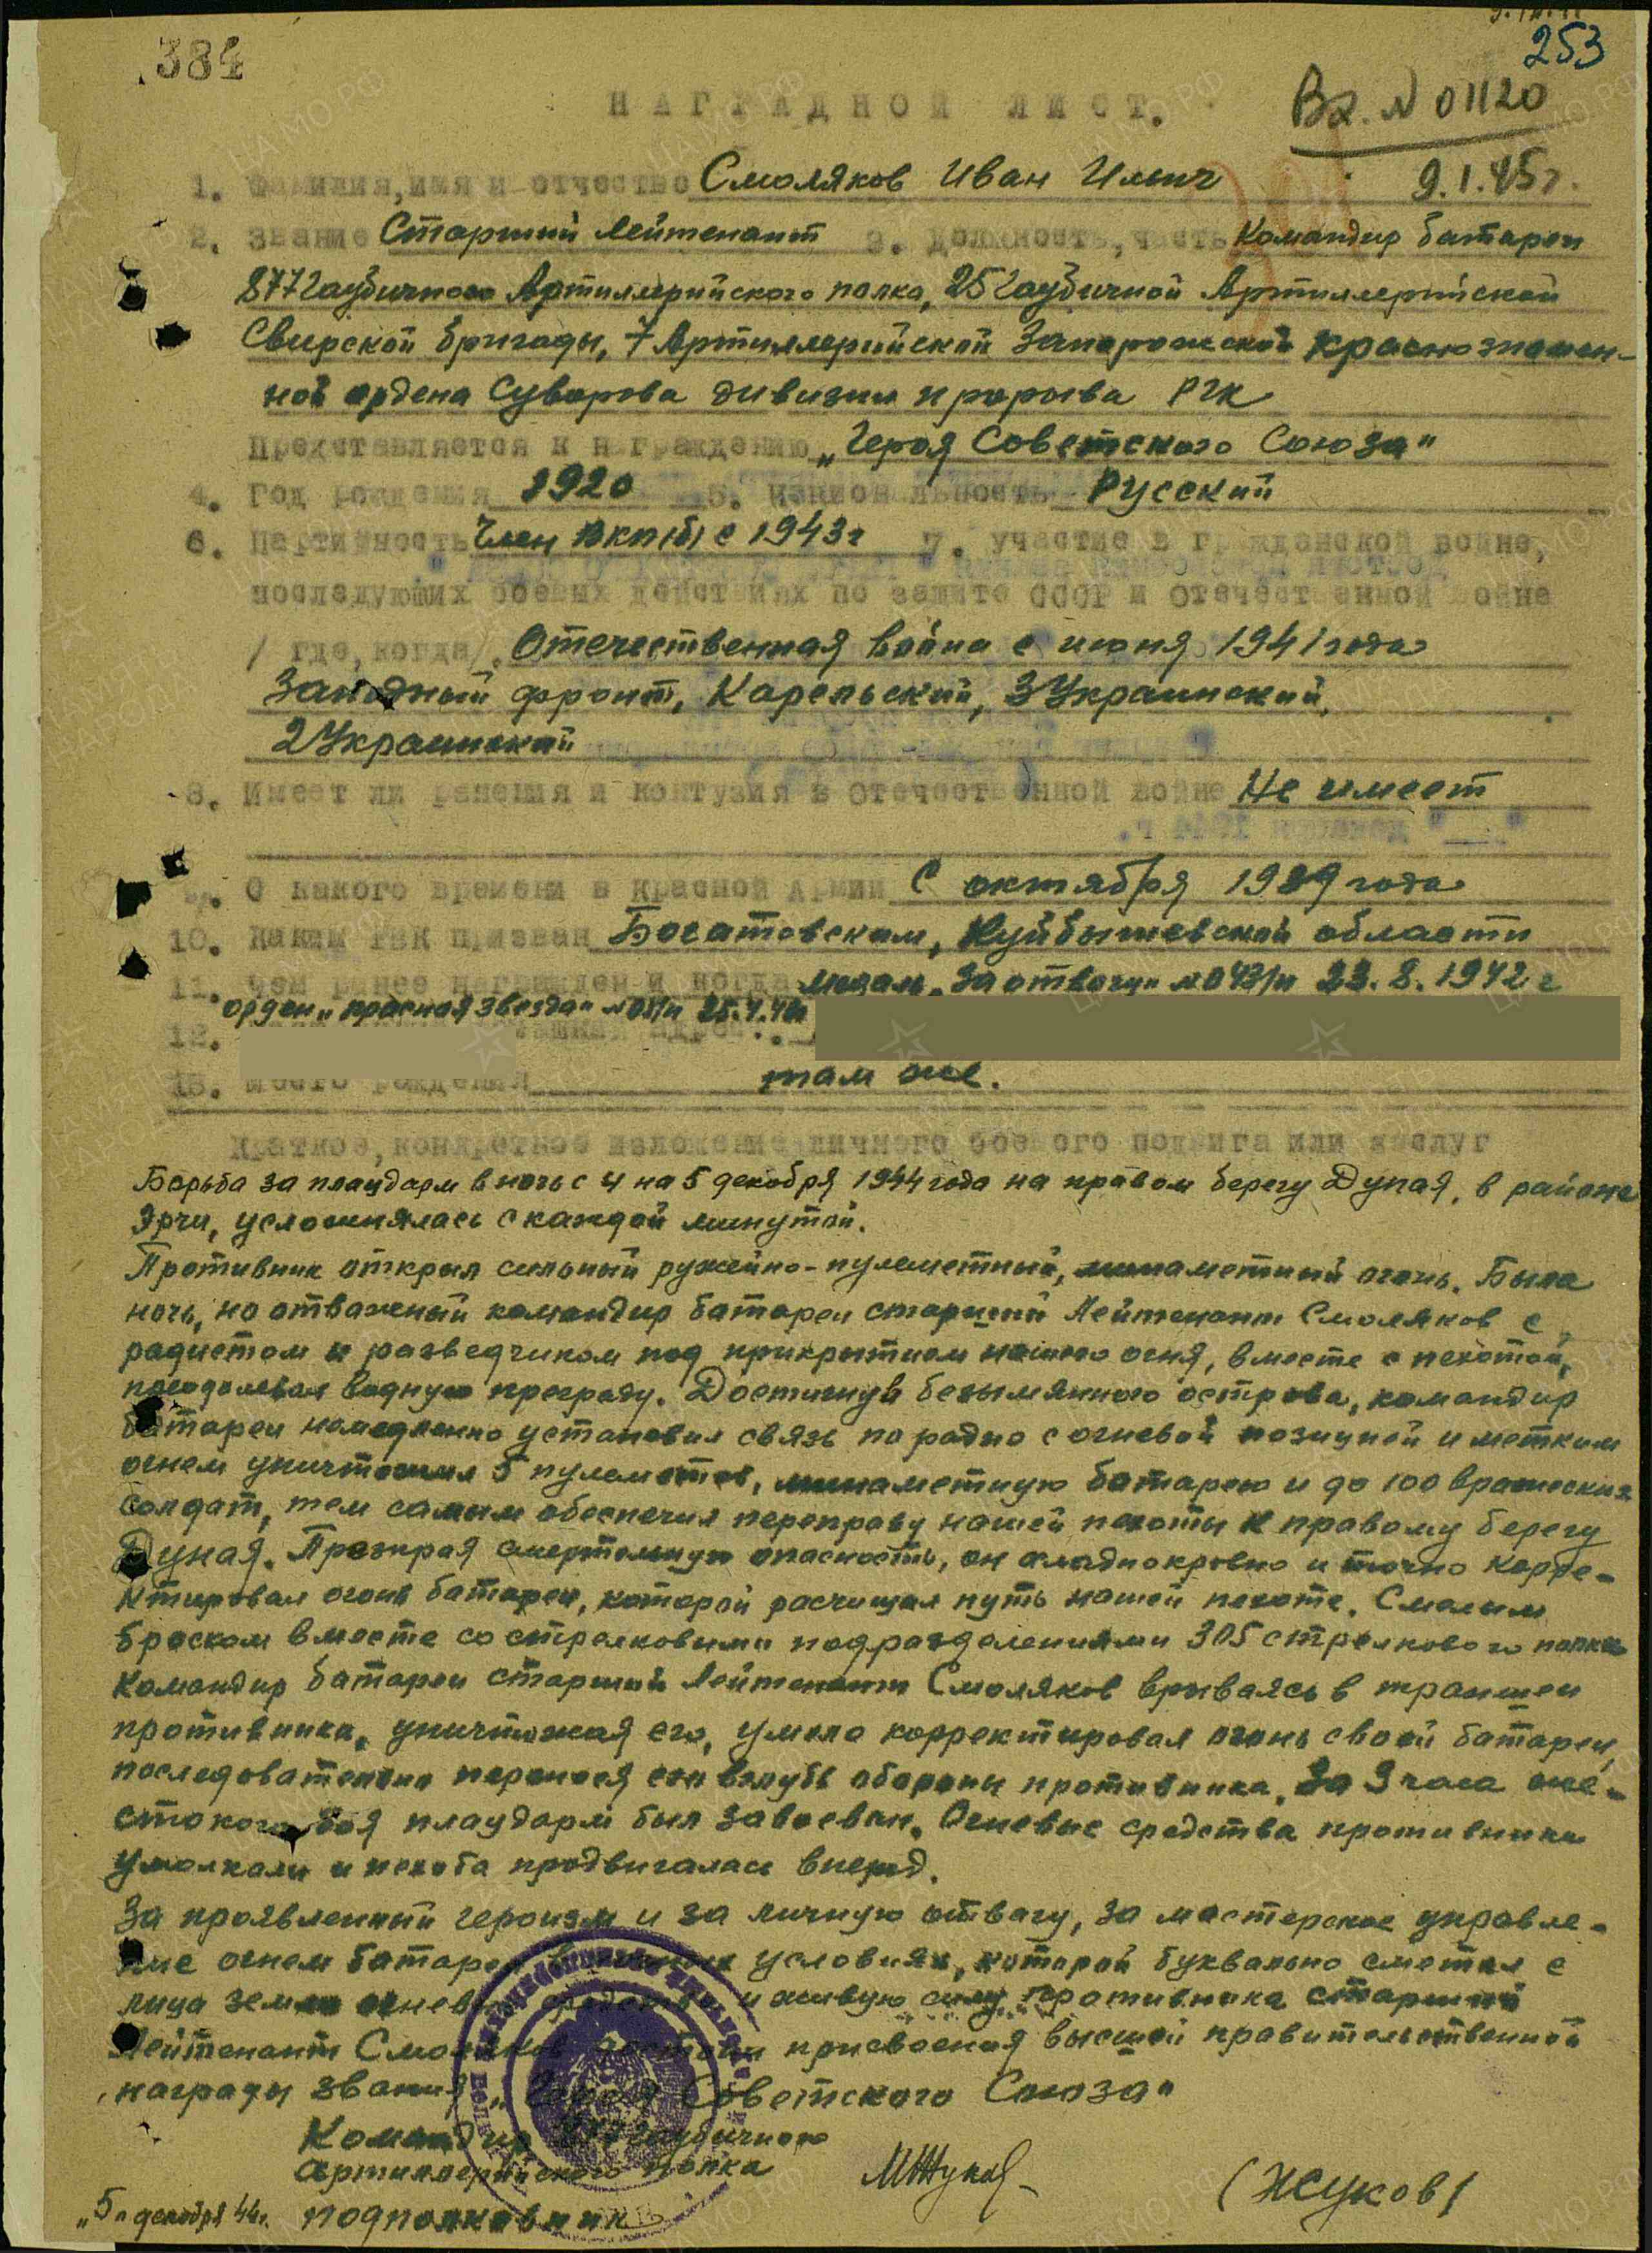 384
253
Вх. N 01120
НАГРАДНОЙ ЛИСТ.
9.1.45г.
1. Фамилия, имя и отчество Смоляков Иван Ильич
2. Звание Старший Лейтенант 3. Должность, часть Командир батареи
877 Гаубичного Артиллерийского полка, 25 Гаубичной Артиллерийской
Свирской бригады, 7 Артиллерийской Запорожской Краснознамен-
ной ордена Суворова дивизии прорыва РГК
Представляется к награждению „Героя Советского Союза"
4. Год рождения 1920 5. Национальность Русский
6. Партийность Член ВКП(б) с 1943г 7. участие в гражданской войне,
последующих боевых действиях по защите СССР и Отечественной войне
/где, когда/. Отечественная война с июня 1941 года
Западный фронт, Карельский, 3 Украинский,
2 Украинский
8. Имеет ли ранения и контузия в Отечественной войне Не имеет
9. С какого времени в Красной Армии С октября 1939 года
10. Каким РВК призван Богатовским, Куйбышевской области
11. Чем ранее награжден и когда медаль „За отвагу" №043/н 23.8.1942г
орден „Красная Звезда"
12. адрес:
13. Место рождения там же.
Краткое, конкретное изложение личного боевого подвига или заслуг
Борьба за плацдарм в ночь с 4 на 5 декабря 1944 года на правом берегу Дуная, в районе
Эрчи, усложнялась с каждой минутой.
Противник открыл сильный ружейно-пулеметный, минометный огонь. Была
ночь, но отважный командир батареи старший Лейтенант Смоляков с
радистом и разведчиком под прикрытием нашего огня, вместе с пехотой,
преодолевал водную преграду. Достигнув безымянного острова, командир
батареи немедленно установил связь по радио с огневой позицией и метким
огнем уничтожил 5 пулеметов, минометную батарею и до 100 вражеских
солдат, тем самым обеспечил переправу нашей пехоты к правому берегу
Дуная. Презирая смертельную опасность, он хладнокровно и точно корре-
ктировал огонь батареи, которой расчищал путь нашей пехоте. Смелым
броском вместе со стрелковыми подразделениями 305 стрелкового полка
Командир батареи старший Лейтенант Смоляков врываясь в траншеи
противника, уничтожая его, умело корректировал огонь своей батареи,
последовательно перенося его вглубь обороны противника. За 3 часа же-
стокого боя плацдарм был завоеван. Огневые средства противника
умолкали и пехота продвигалась вперед.
За проявленный героизм и за личную отвагу, за мастерское управле-
ние огнем батареи в условиях, которой буквально сметал с
лица земли огневые средства и живую силу противника старший
Лейтенант Смоляков достоин присвоения высшей правительственной
награды звания „Героя Советского Союза"
Командир Гаубичного
Артиллерийского полка
подполковник МЖуков (ЖУКОВ)
„5" декабря 44г.